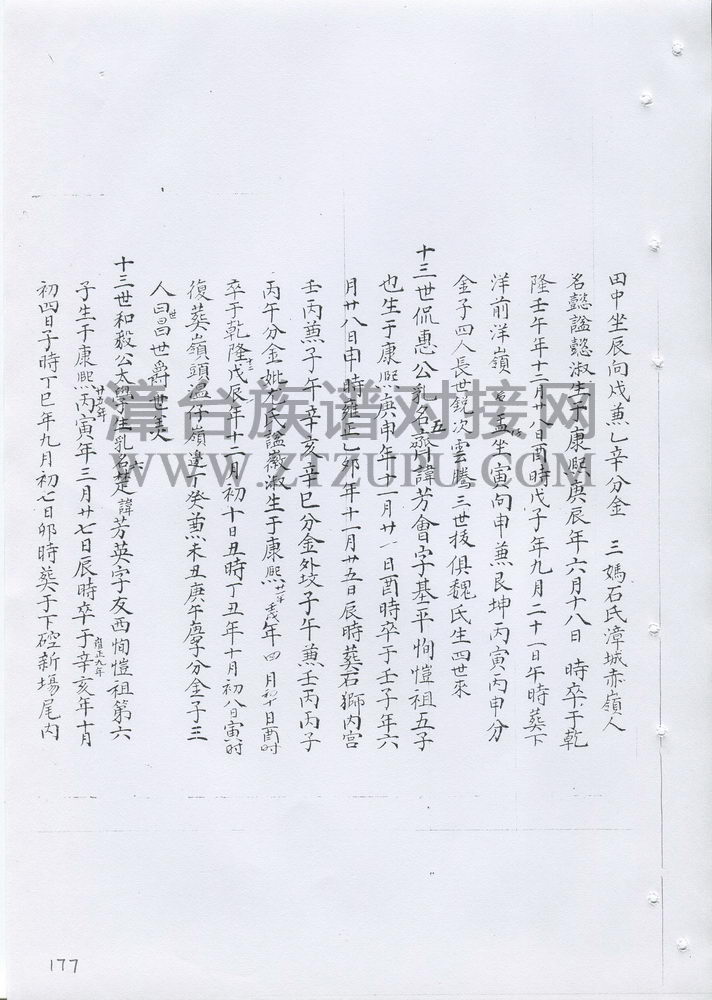 田中坐辰向戌蕪乙辛分金 三媽石氏漳城赤嶺人
名懿謚懿淑生于康熙庚辰年六月十八日 時卒于乾
隆壬午年十二月廿八日酉時戊子年九月二十一日午時葬下
洋前洋嶺 坐寅向申蕪艮坤丙寅丙申分
金子四人長世鏡次雲騰三世援俱魏氏生四世來
十三世侃惠公乳名齊五諱芳會字基平恂愷祖五子
也生于康熙庚申年十一月廿一日酉時卒于壬子年六
月廿八日申時雍正乙卯年十一月廿五日辰時葬石獅內宮
壬丙蕪子午辛亥辛巳分金外坟子午蕪壬丙丙子
丙午分金妣 氏謚徽淑生于康熙廿一年壬戌年四月初十日酉時
卒于乾隆十三戊辰年十二月初十日丑時丁丑年十月初八日寅時
復葬嶺頭溫仔嶺邊丁癸蕪未丑庚午庚子分金子三
人曰世昌世爵世美
十三世和毅公太學生乳名楚六諱芳英字友西恂愷祖第六
子生于康熙廿五年丙寅年三月廿七日辰時卒于雍正九年辛亥年十月
初四日子時丁巳年九月初七日卯時葬于下硿新塲尾內
177
漳台族谱对接网
WWW.ZTZUPU.COM